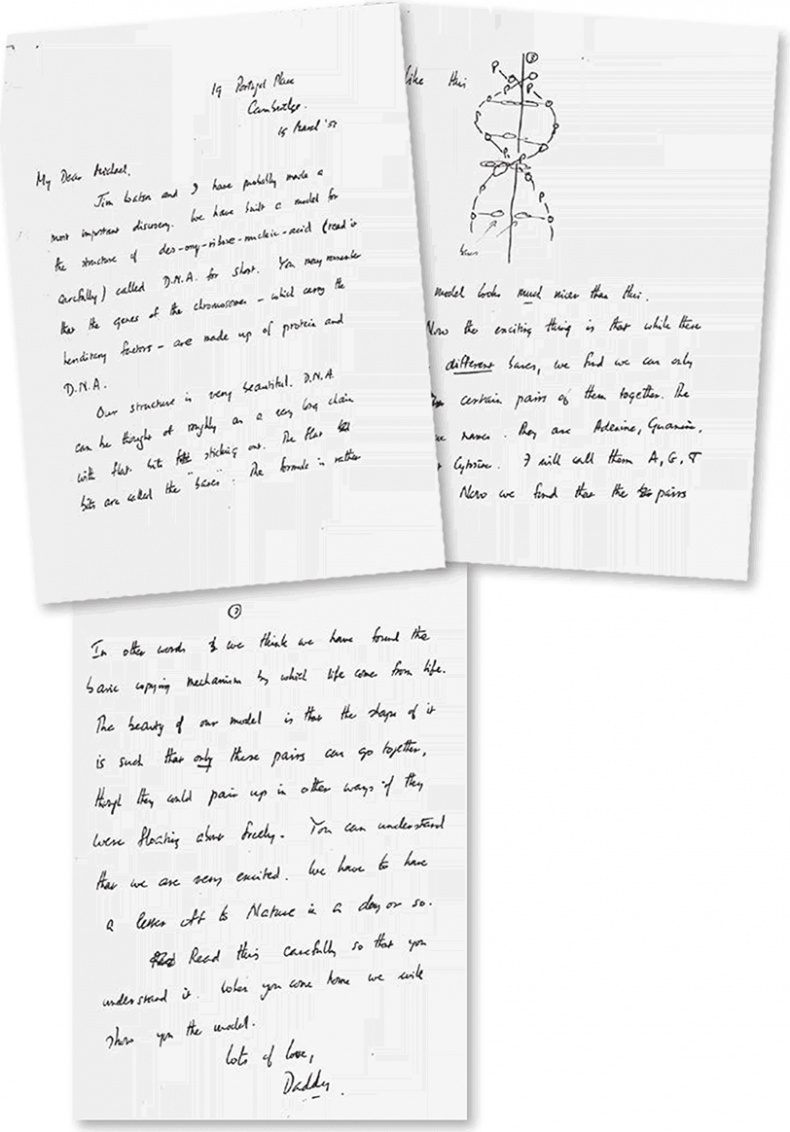 19 Portugal Place
Cambridge.
My Dear Michael,
Jim Watson and I have probably made a
most important discovery. We have built a model for
the structure of des-oxy-ribose-nucleic-acid (read it
carefully) called D.N.A. for short. You may remember
that the genes of the chromosomes – which carry the
hereditary factors – are made up of protein and
D.N.A.
Our structure is very beautiful. D.N.A.
can be thought of roughly as a very long chain
with flat bits sticking out. The flat
bits are called the "bases". The formula is rather
like this
P
P
P
P
P
bases
model looks much nicer than this.
Now the exciting thing is that while there
different bases, we find we can only
certain pairs of them together. The
names. They are Adenine, Guanine,
Cytosine. I will call them A, G, T
Now we find that the pairs
③
In other words we think we have found the
basic copying mechanism by which life comes from life.
The beauty of our model is that the shape of it
is such that only these pairs can go together,
though they could pair up in other ways if they
were floating about freely. You can understand
that we are very excited. We have to have
a letter off to Nature in a day or so.
Read this carefully so that you
understand it. When you come home we will
show you the model.
Lots of love,
Daddy